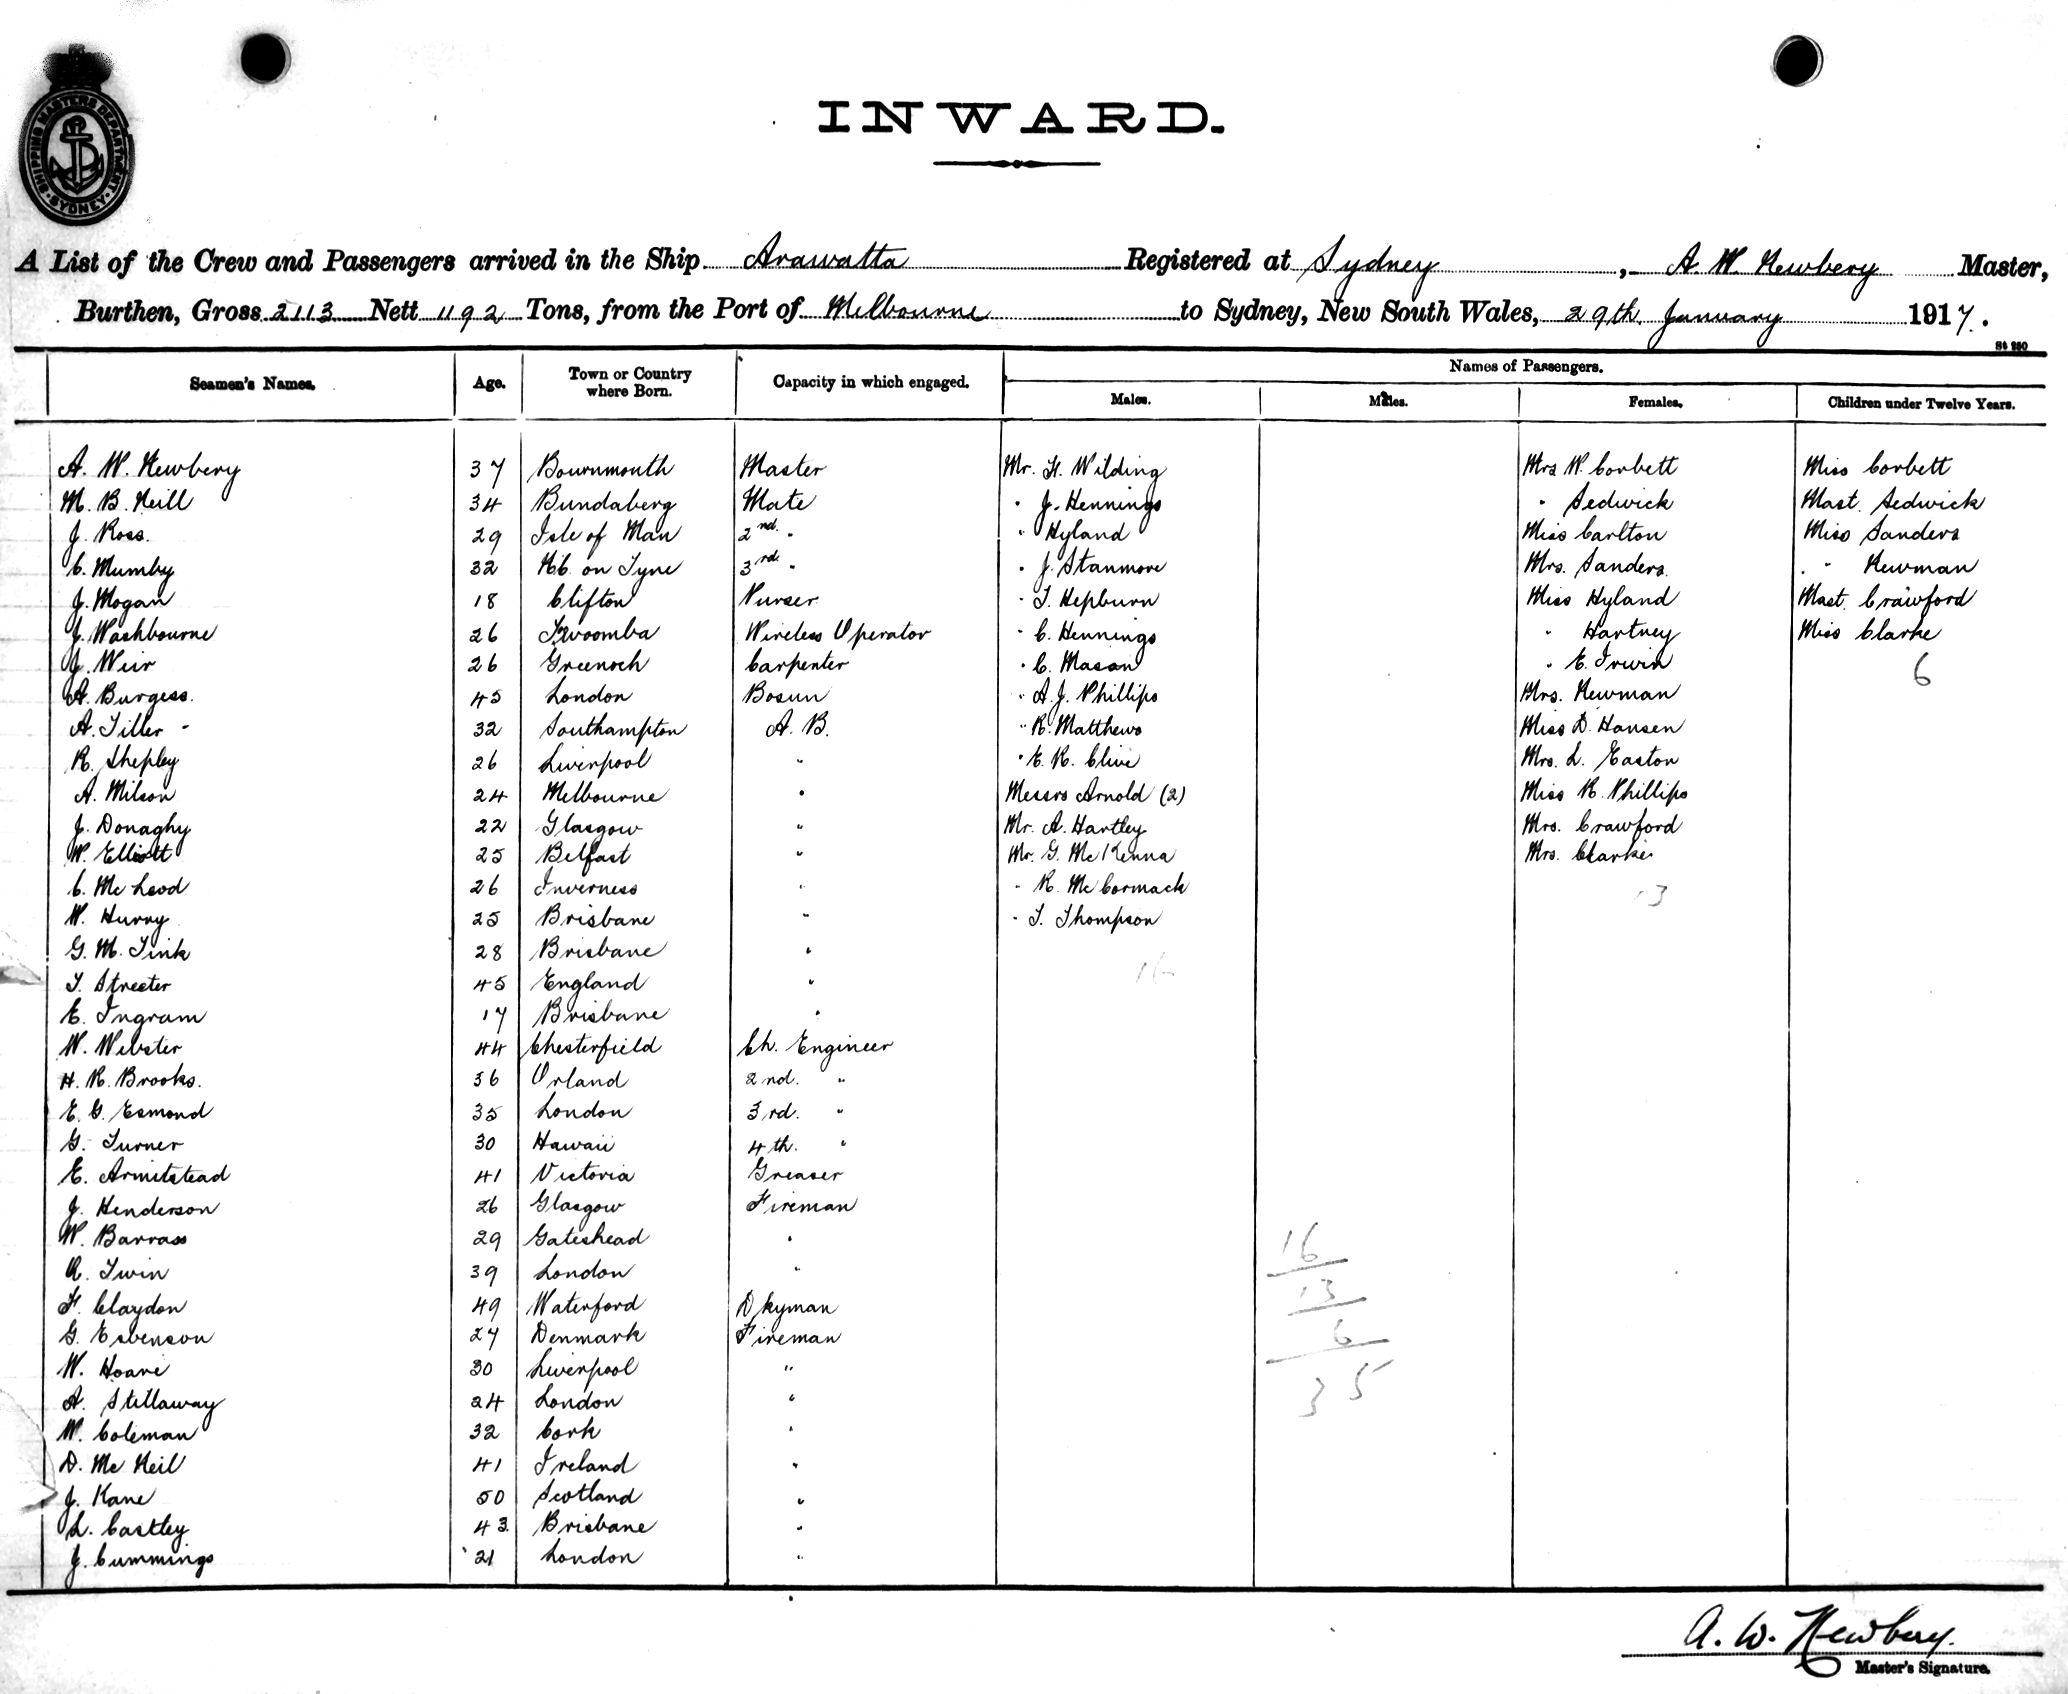 SHIPPING MASTERS DEPARTMENT
SYDNEY
INWARD.
A List of the Crew and Passengers arrived in the Ship Arawatta Registered at Sydney, A. W. Newbery Master,
Burthen, Gross 2113 Nett 1192 Tons, from the Port of Melbourne to Sydney, New South Wales, 29th January 1917.
St 250
Seamen's Names. Age. Town or Country where Born. Capacity in which engaged. Names of Passengers.
Males. Males. Females. Children under Twelve Years.
A. W. Newbery 37 Bournmouth Master Mr. H. Wilding Mrs W. Corbett Miss Corbett
M. B. Neill 34 Bundaberg Mate " J. Hennings " Sedwick Mast. Sedwick
J. Ross. 29 Isle of Man 2nd. " " Hyland Miss Carlton Miss Sanders
C. Mumby 32 on Tyne 3rd. " " J. Stanmore Mrs. Sanders. " Newman
J. Mogan 18 Clifton Purser " T. Hepburn Miss Hyland Mast. Crawford
J. Washbourne 26 Wireless Operator " C. Hennings " Hartney Miss Clarke
J. Weir 26 Greenoch Carpenter " C. Mason " E. Irwin 6
A. Burgess. 45 London Bosun " A. J. Phillips Mrs. Newman
A. Tiller 32 Southampton A. B. " R. Matthews Miss D. Hansen
R. Shepley 26 Liverpool " " E. R. Clive Mrs. L. Easton
A. Milson 24 Melbourne " Messrs Arnold (2) Miss R. Phillips
J. Donaghy 22 Glasgow " Mr. A. Hartley Mrs. Crawford
W. Elliott 25 Belfast " Mr. G. McKenna Mrs. Clarke
C. McLeod 26 Inverness " " R. McCormack 13
W. Hurry 25 Brisbane " " T. Thompson
G. M. Tink 28 Brisbane "
T. Streeter 45 England " 16
E. Ingram 17 Brisbane "
W. Webster 44 Chesterfield Ch. Engineer
H. R. Brooks. 36 Orland 2nd. "
E. G. Esmond 35 London 3rd. "
G. Turner 30 Hawaii 4th. "
E. Armitstead 41 Victoria Greaser
J. Henderson 26 Glasgow Fireman
W. Barrass 29 Gateshead " 16
A. Irwin 39 London "
F. Claydon 49 Waterford Dkyman 13
G. Esbenson 27 Denmark Fireman 6
W. Hoare 30 Liverpool "
A. Stillaway 24 London " 35
W. Coleman 32 Cork "
D. McNeil 41 Ireland "
J. Kane 50 Scotland "
L. Castley 43 Brisbane "
J. Cummings 21 London "
A. W. Newbery.
Master's Signature.